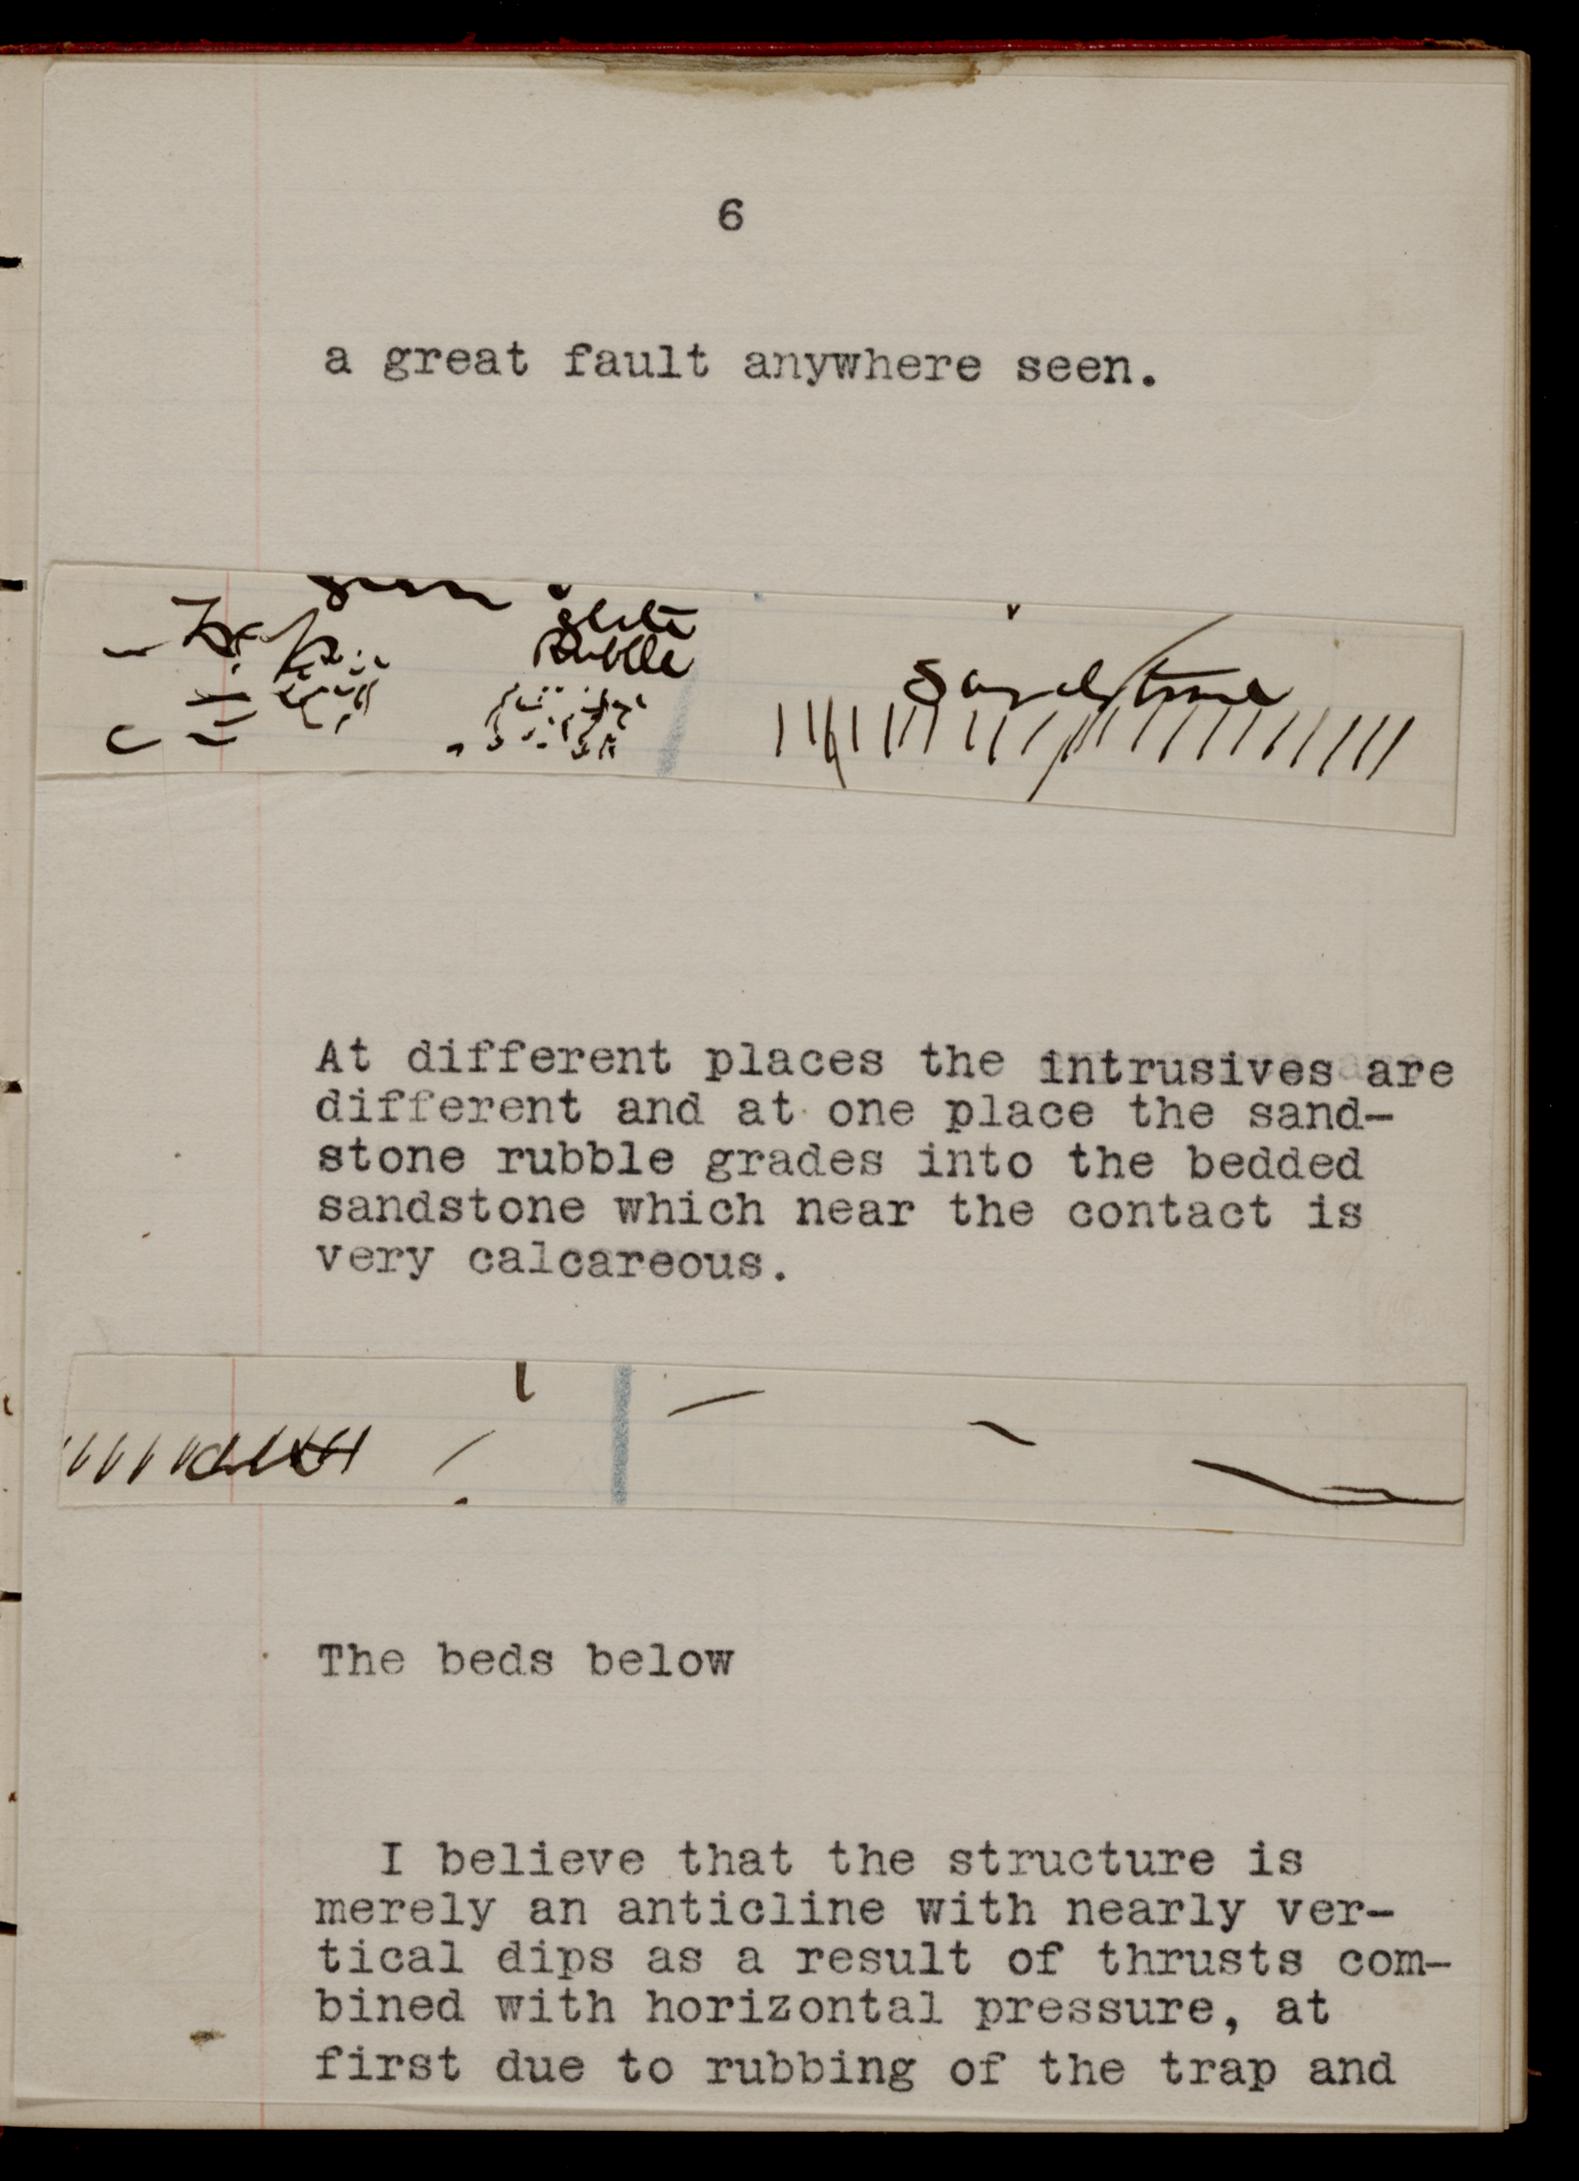 6
a great fault anywhere seen.
slate
Rubble
Sandstone
At different places the intrusives are
different and at one place the sand-
stone rubble grades into the bedded
sandstone which near the contact is
very calcareous.
The beds below
I believe that the structure is
merely an anticline with nearly ver-
tical dips as a result of thrusts com-
bined with horizontal pressure, at
first due to rubbing of the trap and